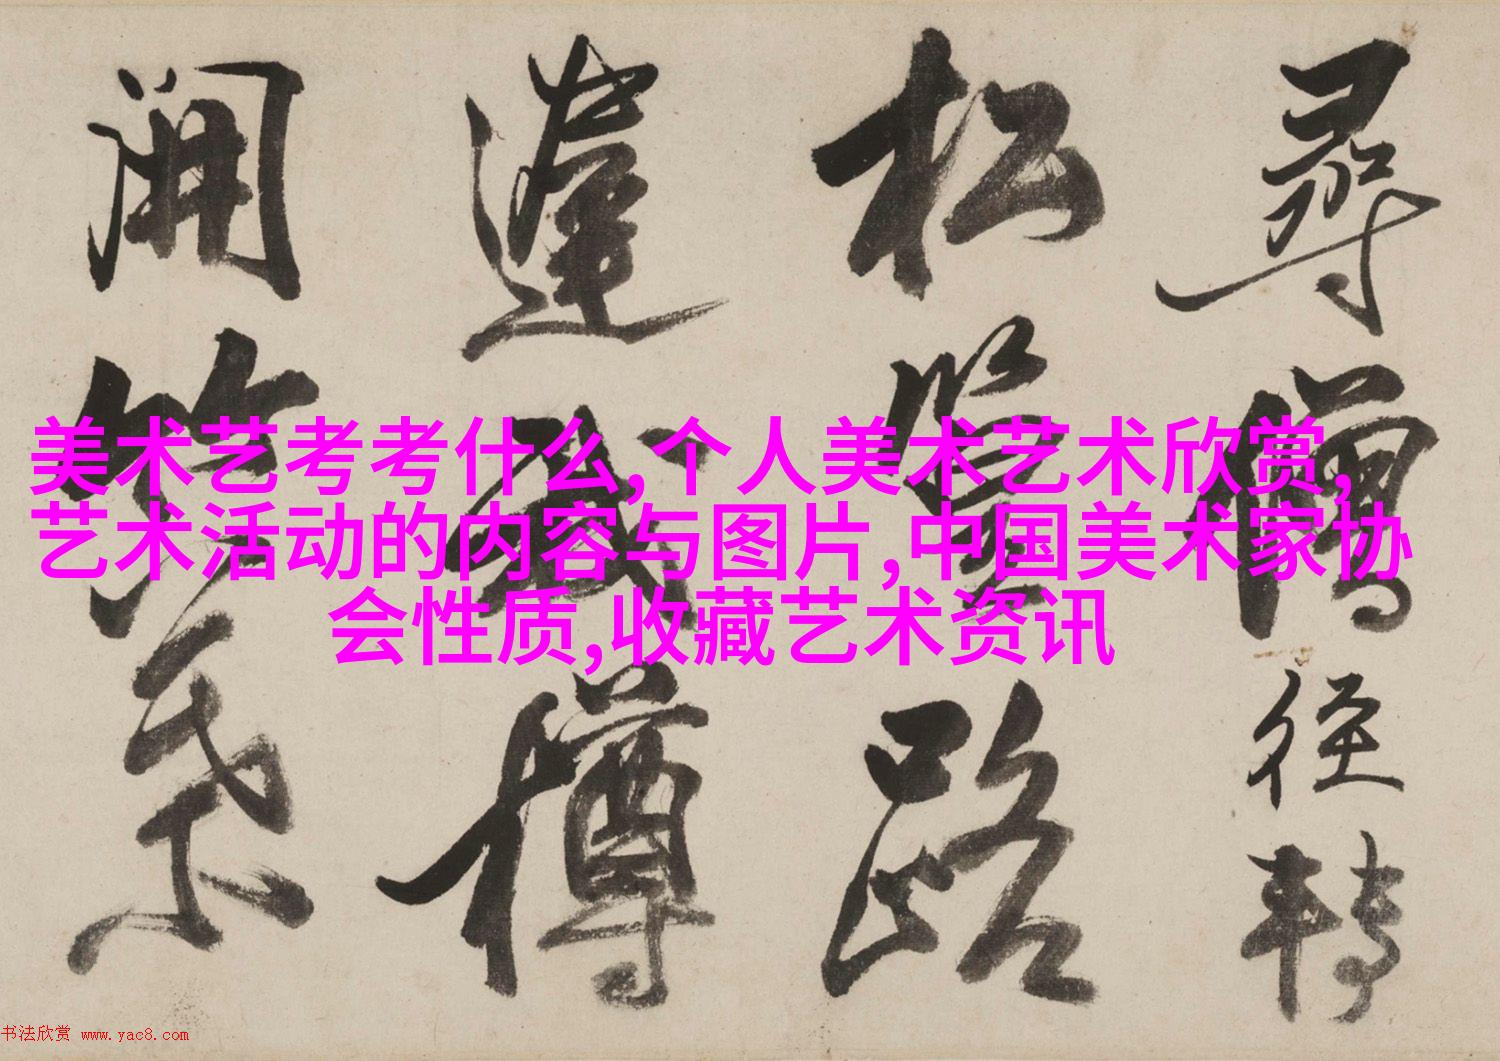 尋僧徑轉
松路
樽
開
美术艺考考什么,个人美术艺术欣赏,
艺术活动的内容与图片,中国美术家协
会性质,收藏艺术资讯
书法欣赏 www.yac8.com